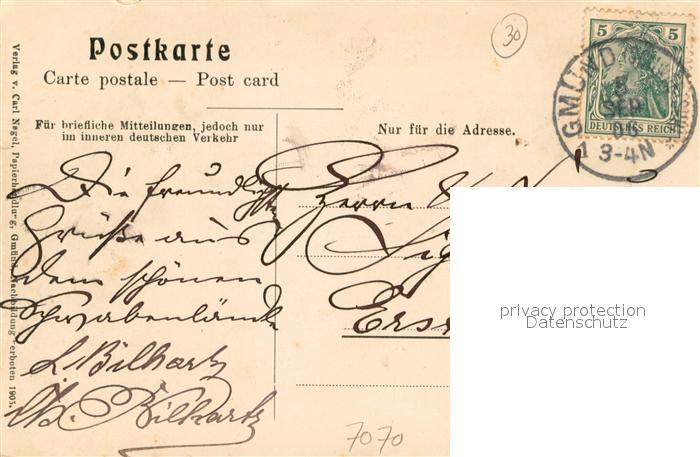 Postkarte
Carte postale — Post card
30
5 5
DEUTSCHES REICH
GMÜND
5
SEP
05
1 3-4N
Für briefliche Mitteilungen, jedoch nur
im inneren deutschen Verkehr
Nur für die Adresse.
Die freundlichsten
Grüße aus
dem schönen
Schwabenlände
L. Bilhartz
Bilhartz
Herrn
Verlag v. Carl Nagel, Papierhandlung, Gmünd. Nachbildung verboten 1905.
7070
privacy protection
Datenschutz